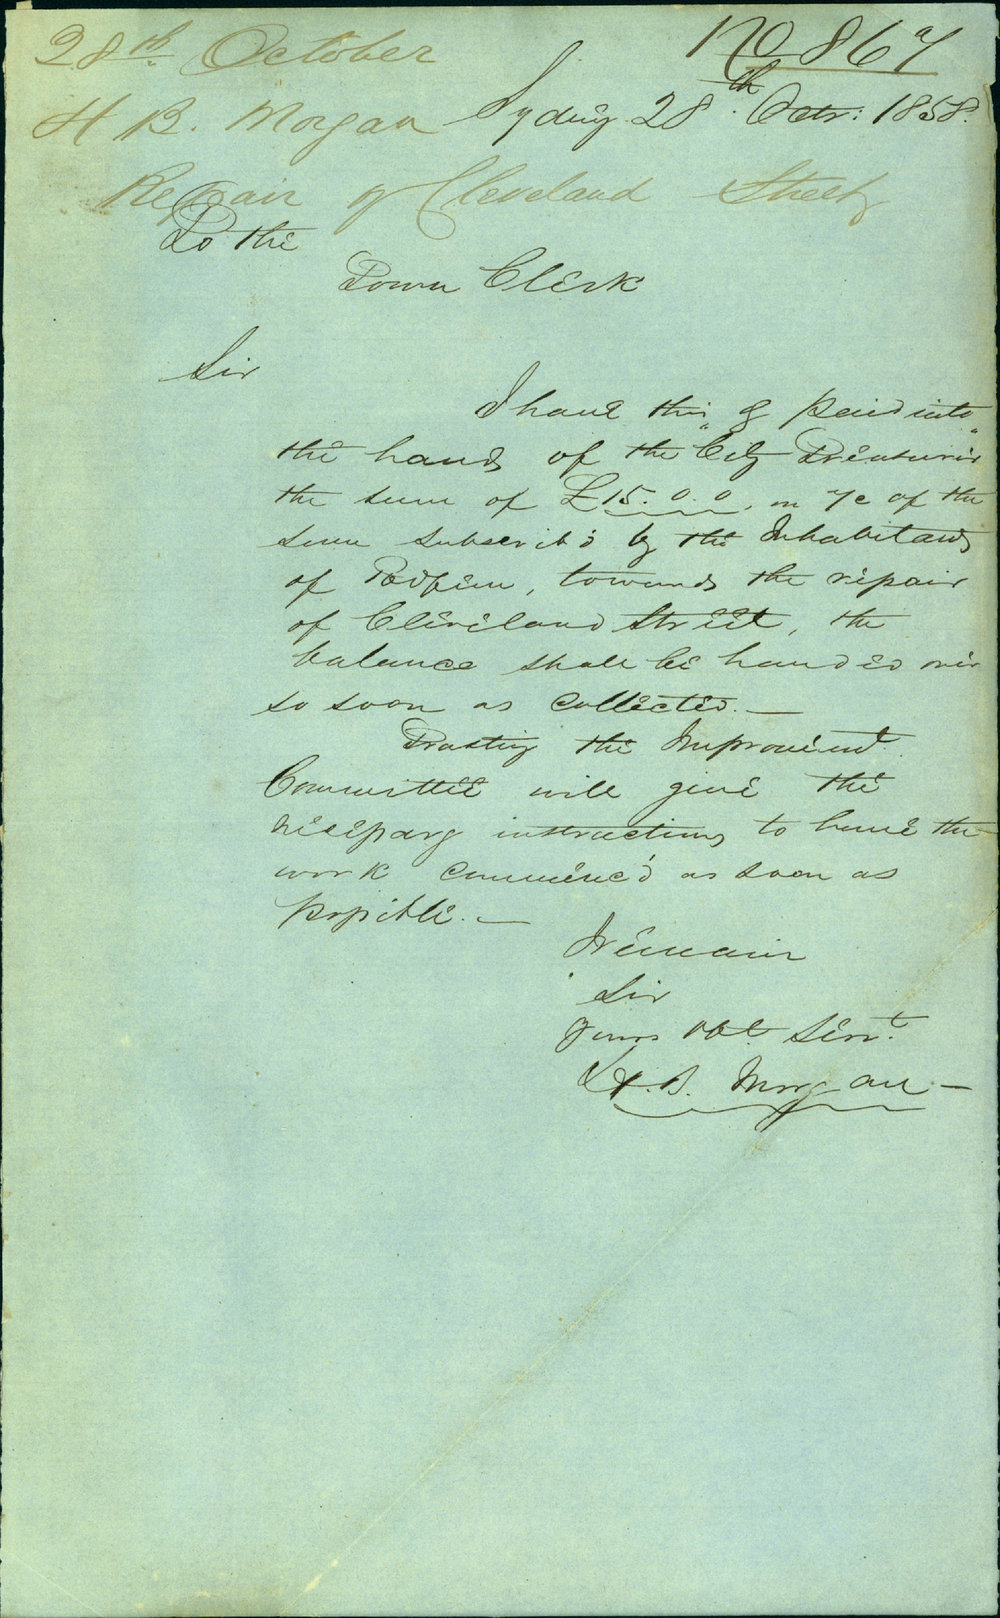 28th October
No 867
H B. Morgan
Sydney 28th Octr: 1858.
Repair of Cleveland Street
To the
Town Clerk
Sir
I have this day paid into
the hands of the City Treasurer
the sum of £15.0.0. on a/c of the
sum subscrib'd by the Inhabitants
of Redfern, towards the repair
of Cleveland Street, the
balance shall be handed over
so soon as collected. —
Trusting the Improvemt
Committee will give the
necessary instructions to have the
work commenc'd as soon as
possible. —
I remain
Sir
Yours Obt Servt
H. B. Morgan —